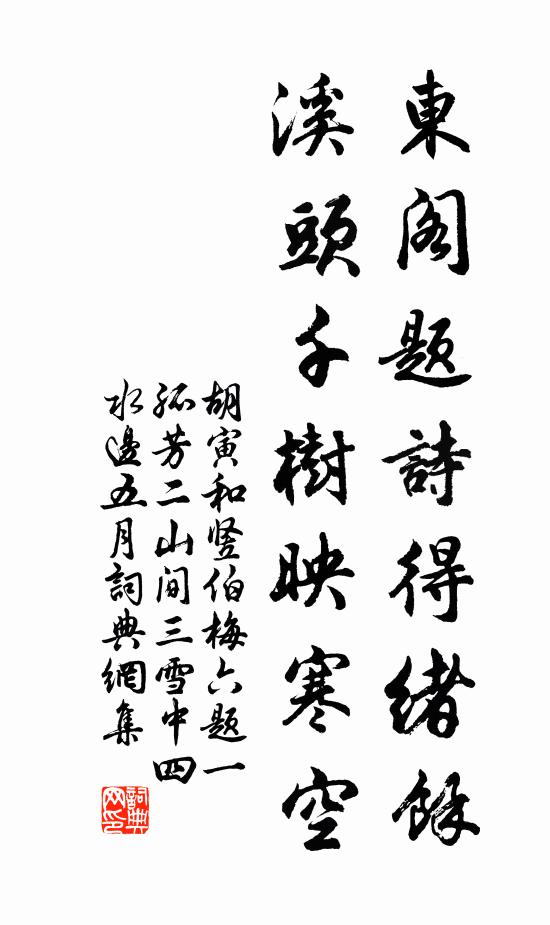 東閣題詩得緒餘
溪頭千樹映寒空
胡寅和竖伯梅六题一
孤芳二山间三雪中四
水邊五月詞典網集
詞典
网印